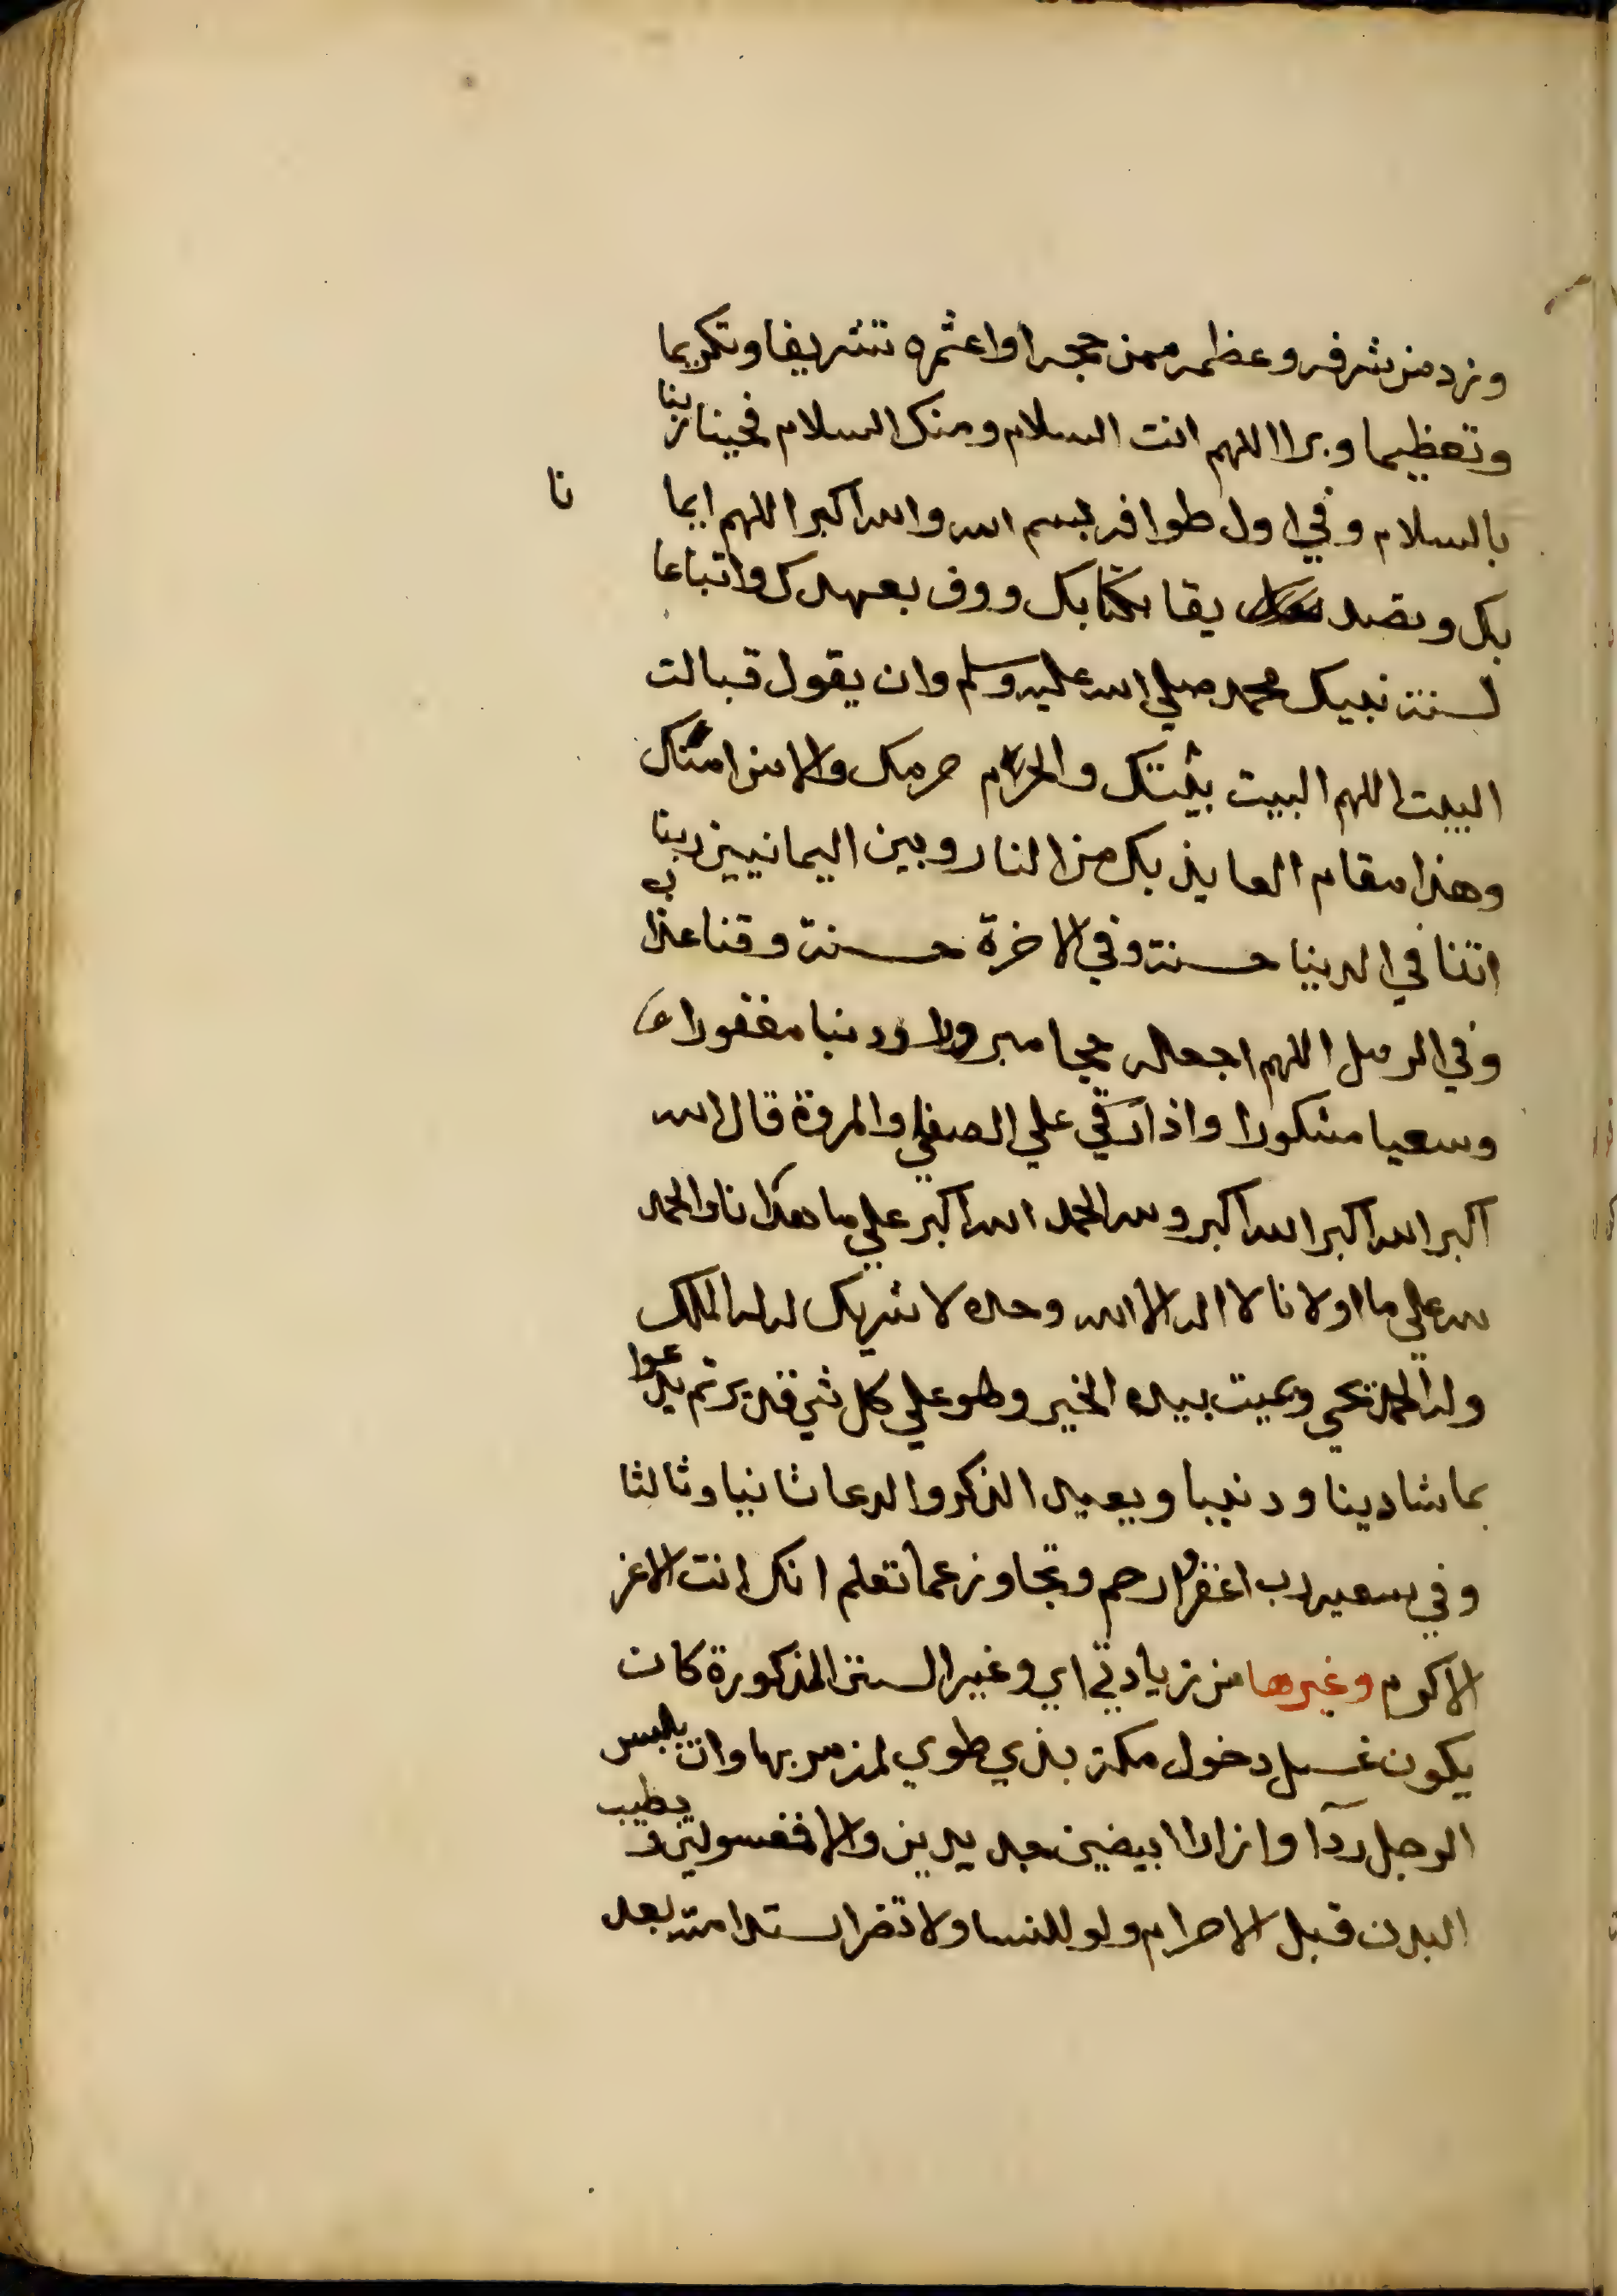 وزد من شرفه وعظمه ممن حجه او اعتمره تشريفا وتكريما
وتعظيما وبرا اللهم انت السلام ومنك السلام فحينا ربنا
بالسلام وفي اول طوافه بسم الله والله اكبر اللهم ايما نا
بك وتصد يقا بكتابك ووف بعهدك واتباعا
لسنة نبيك محمد صلي الله عليه وسلم وان يقول قبالت
البيت اللهم البيت بيتك والحرام حرمك والامن امنك
وهذا مقام العايذ بك من النار وبين اليمانيين ربنا
اتنا في الدنيا حسنة وفي الاخرة حسنة وقنا عذاب
وفي الرمل اللهم اجعله حجا مبرورا ودنبا مغفورا
وسعيا مشكورا واذا رقي علي الصفا والمروة قال الله
اكبر الله اكبر الله اكبر ولله الحمد الله اكبر علي ما هدانا والحمد
لله علي ما اولانا لا اله الا الله وحده لا شريك له له الملك
وله الحمد يحي ويميت بيده الخير وهو علي كل شي قدير ثم يدعوا
بما شا دينا ودنييا ويعيد الذكر والدعا ثانيا وثالثا
وفي سعيه رب اغفر وارحم وتجاوز عما تعلم انك انت الاعز
الاكرم وغيرها من زيادتي اي وغير السنن المذكورة كان
يكون غسل دخول مكة بذي طوي لمن مر بها وان يلبس
الرجل ردآ وازارا ابيضين جديدين والا فغسولين ويطيب
البدن قبل الاحرام ولو للنسا ولا تضر استدامته بعد